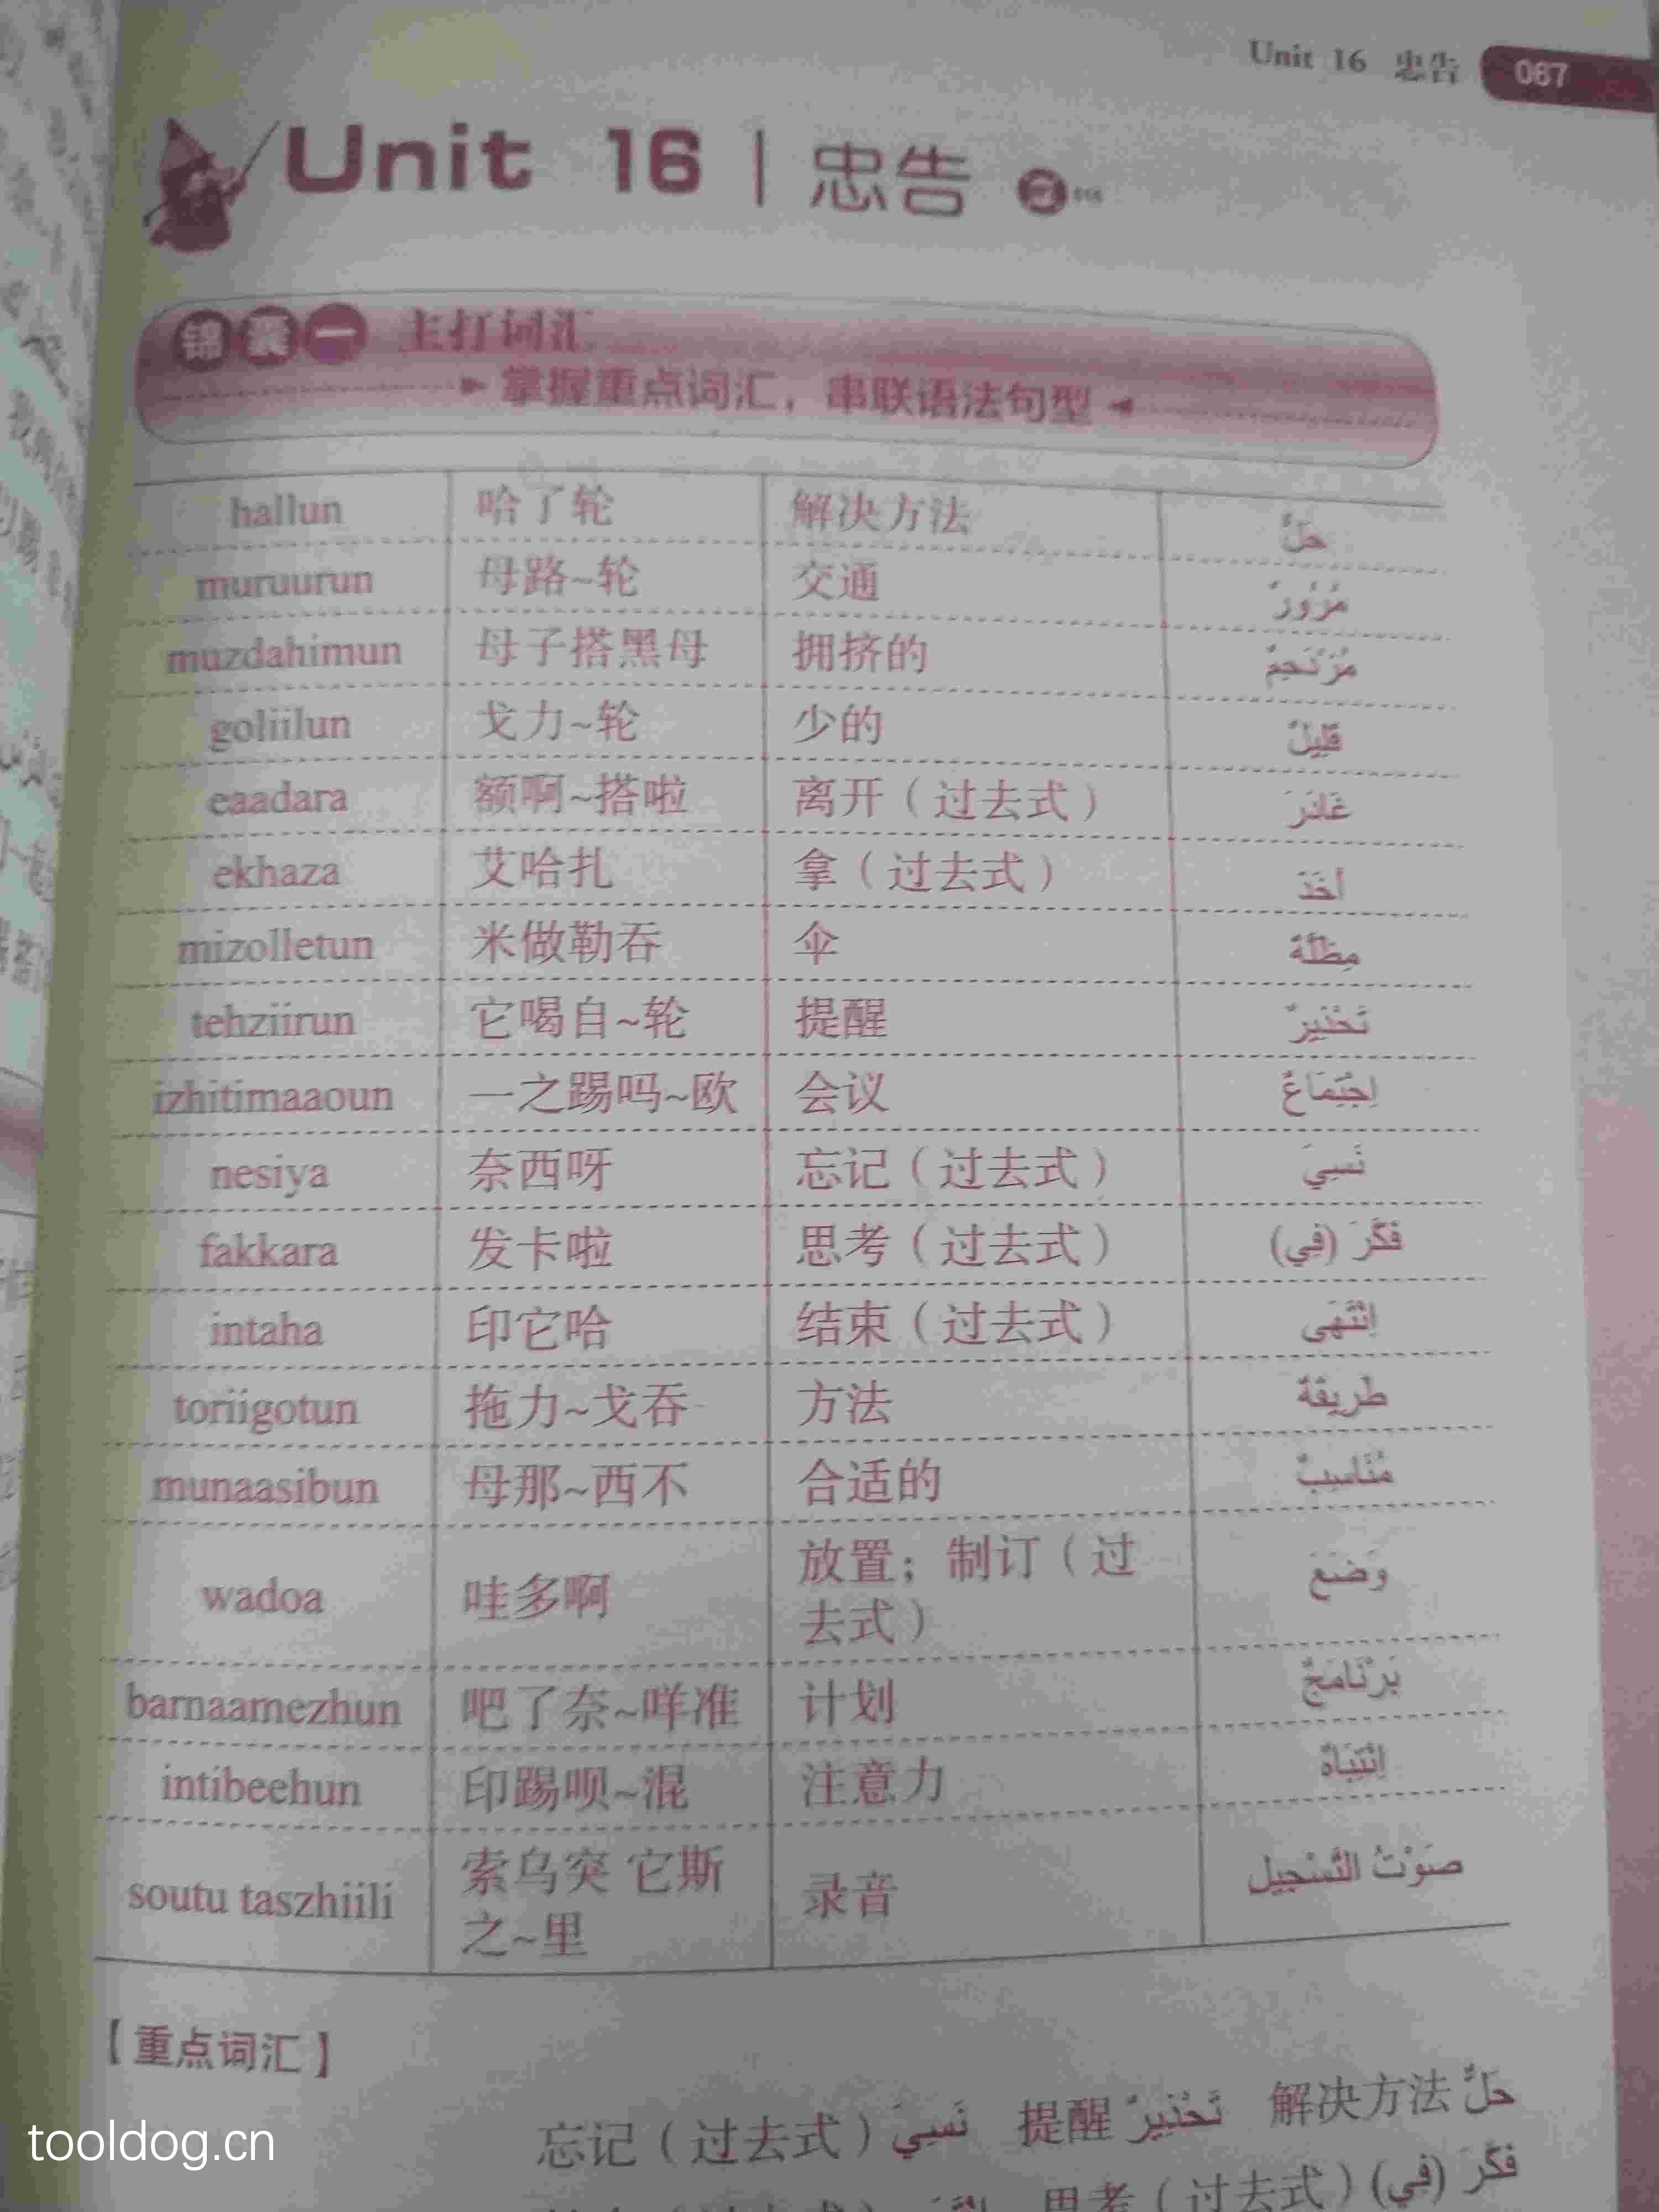 Unit 16 忠告 067
Unit 16 | 忠告
锦囊一 主打词汇
掌握重点词汇，串联语法句型
hallun 哈了轮 解决方法 حَلٌّ
muruurun 母路~轮 交通 مُرُورٌ
muzdahimun 母子搭黑母 拥挤的 مُزْدَحِمٌ
goliilun 戈力~轮 少的 قَلِيلٌ
eaadara 额啊~搭啦 离开（过去式） غَادَرَ
ekhaza 艾哈扎 拿（过去式） أَخَذَ
mizolletun 米做勒吞 伞 مِظَلَّةٌ
tehziirun 它喝自~轮 提醒 تَحْذِيرٌ
izhitimaaoun 一之踢吗~欧 会议 اِجْتِمَاعٌ
nesiya 奈西呀 忘记（过去式） نَسِيَ
fakkara 发卡啦 思考（过去式） فَكَّرَ (فِي)
intaha 印它哈 结束（过去式） اِنْتَهَى
toriigotun 拖力~戈吞 方法 طَرِيقَةٌ
munaasibun 母那~西不 合适的 مُنَاسِبٌ
wadoa 哇多啊 放置；制订（过
去式） وَضَعَ
barnaamezhun 吧了奈~咩准 计划 بَرْنَامَجٌ
intibeehun 印踢呗~混 注意力 اِنْتِبَاهٌ
soutu taszhiili 索乌突 它斯
之~里 录音 صَوْتُ التَّسْجِيل
【重点词汇】
忘记（过去式）نَسِيَ 提醒 تَحْذِيرٌ 解决方法 حَلٌّ
思考（过去式）فَكَّرَ (فِي)
tooldog.cn